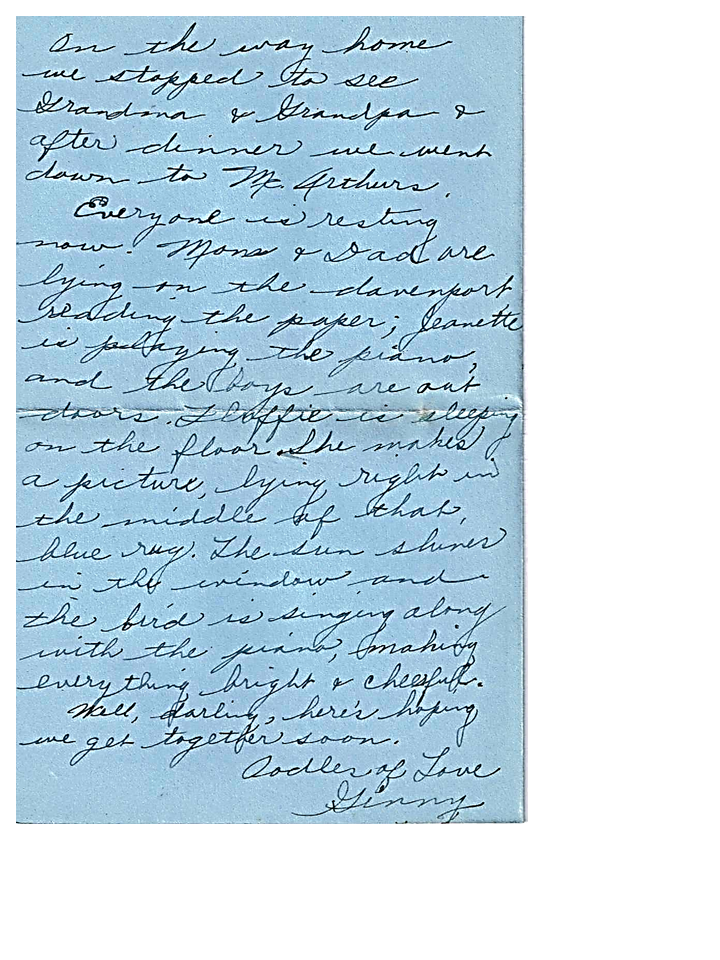 On the way home
we stopped to see
Grandma & Grandpa &
after dinner we went
down to Mc Arthurs.
Everyone is resting
now. Mom & Dad are
lying on the davenport
reading the paper; Jeanette
is playing the piano,
and the boys are out
doors. is sleeping
on the floor. She makes
a picture, lying right in
the middle of that
blue rug. The sun shines
in the window and
the bird is singing along
with the piano, making
everything bright & cheerful.
Well, darling, here's hoping
we get together soon.
Oodles of Love
Ginny